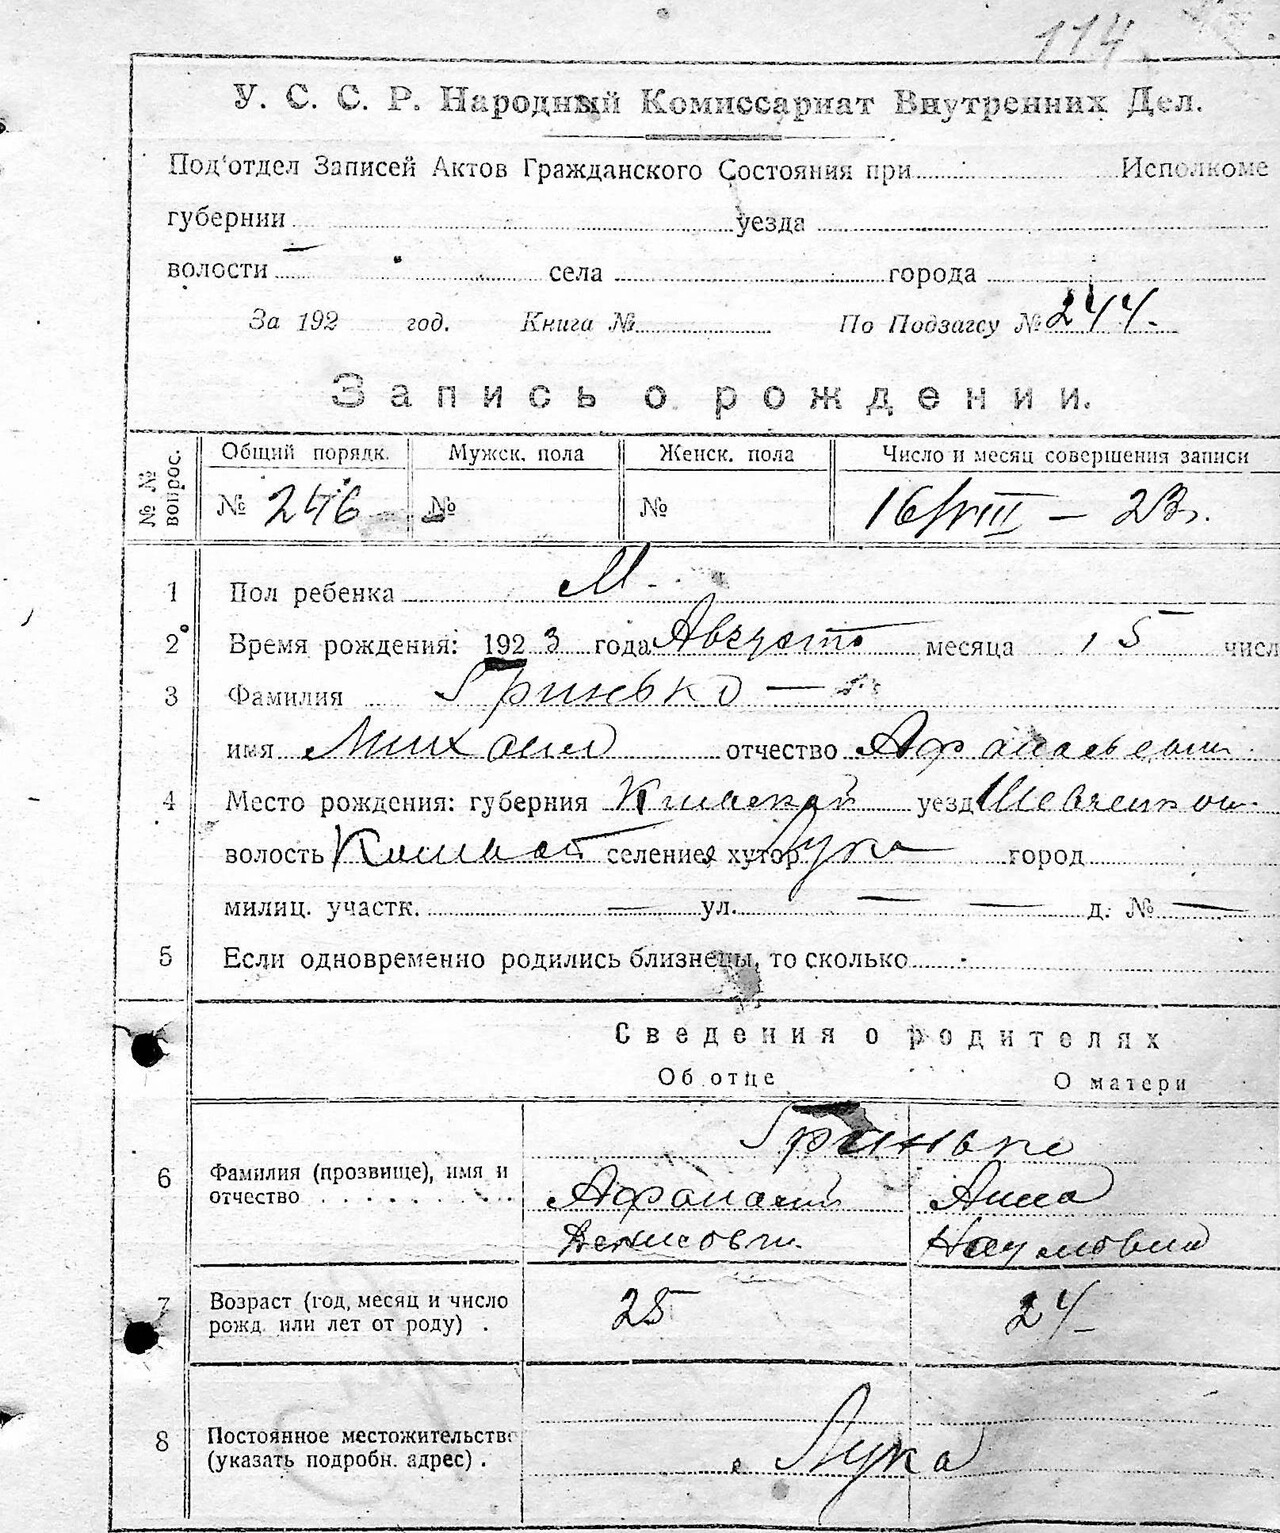 114
У. С. С. Р. Народный Комиссариат Внутренних Дел.
Под'отдел Записей Актов Гражданского Состояния при Исполкоме
губернии уезда
волости села города
За 192 год. Книга № По Подзагсу № 244.
Запись о рождении.
№ № вопрос. Общий порядк. Мужск. пола Женск. пола Число и месяц совершения записи
№ 246 № № 16/VIII – 23г.
1 Пол ребенка М.
2 Время рождения: 1923 года Августа месяца 15 числ
3 Фамилия Гринько —
имя Михаил отчество Афанасьевич
4 Место рождения: губерния Киевской уезд Шевченков.
волость селение, хутор Лука город
милиц. участк. — ул. — — д. № —
5 Если одновременно родились близнецы, то сколько
Сведения о родителях
Об отце О матери
Гринько
6 Фамилия (прозвище), имя и
отчество Афанасий Анна
Денисович Наумовна
7 Возраст (год, месяц и число
рожд. или лет от роду) . 25 24
8 Постоянное местожительство
(указать подробн. адрес) . Лука